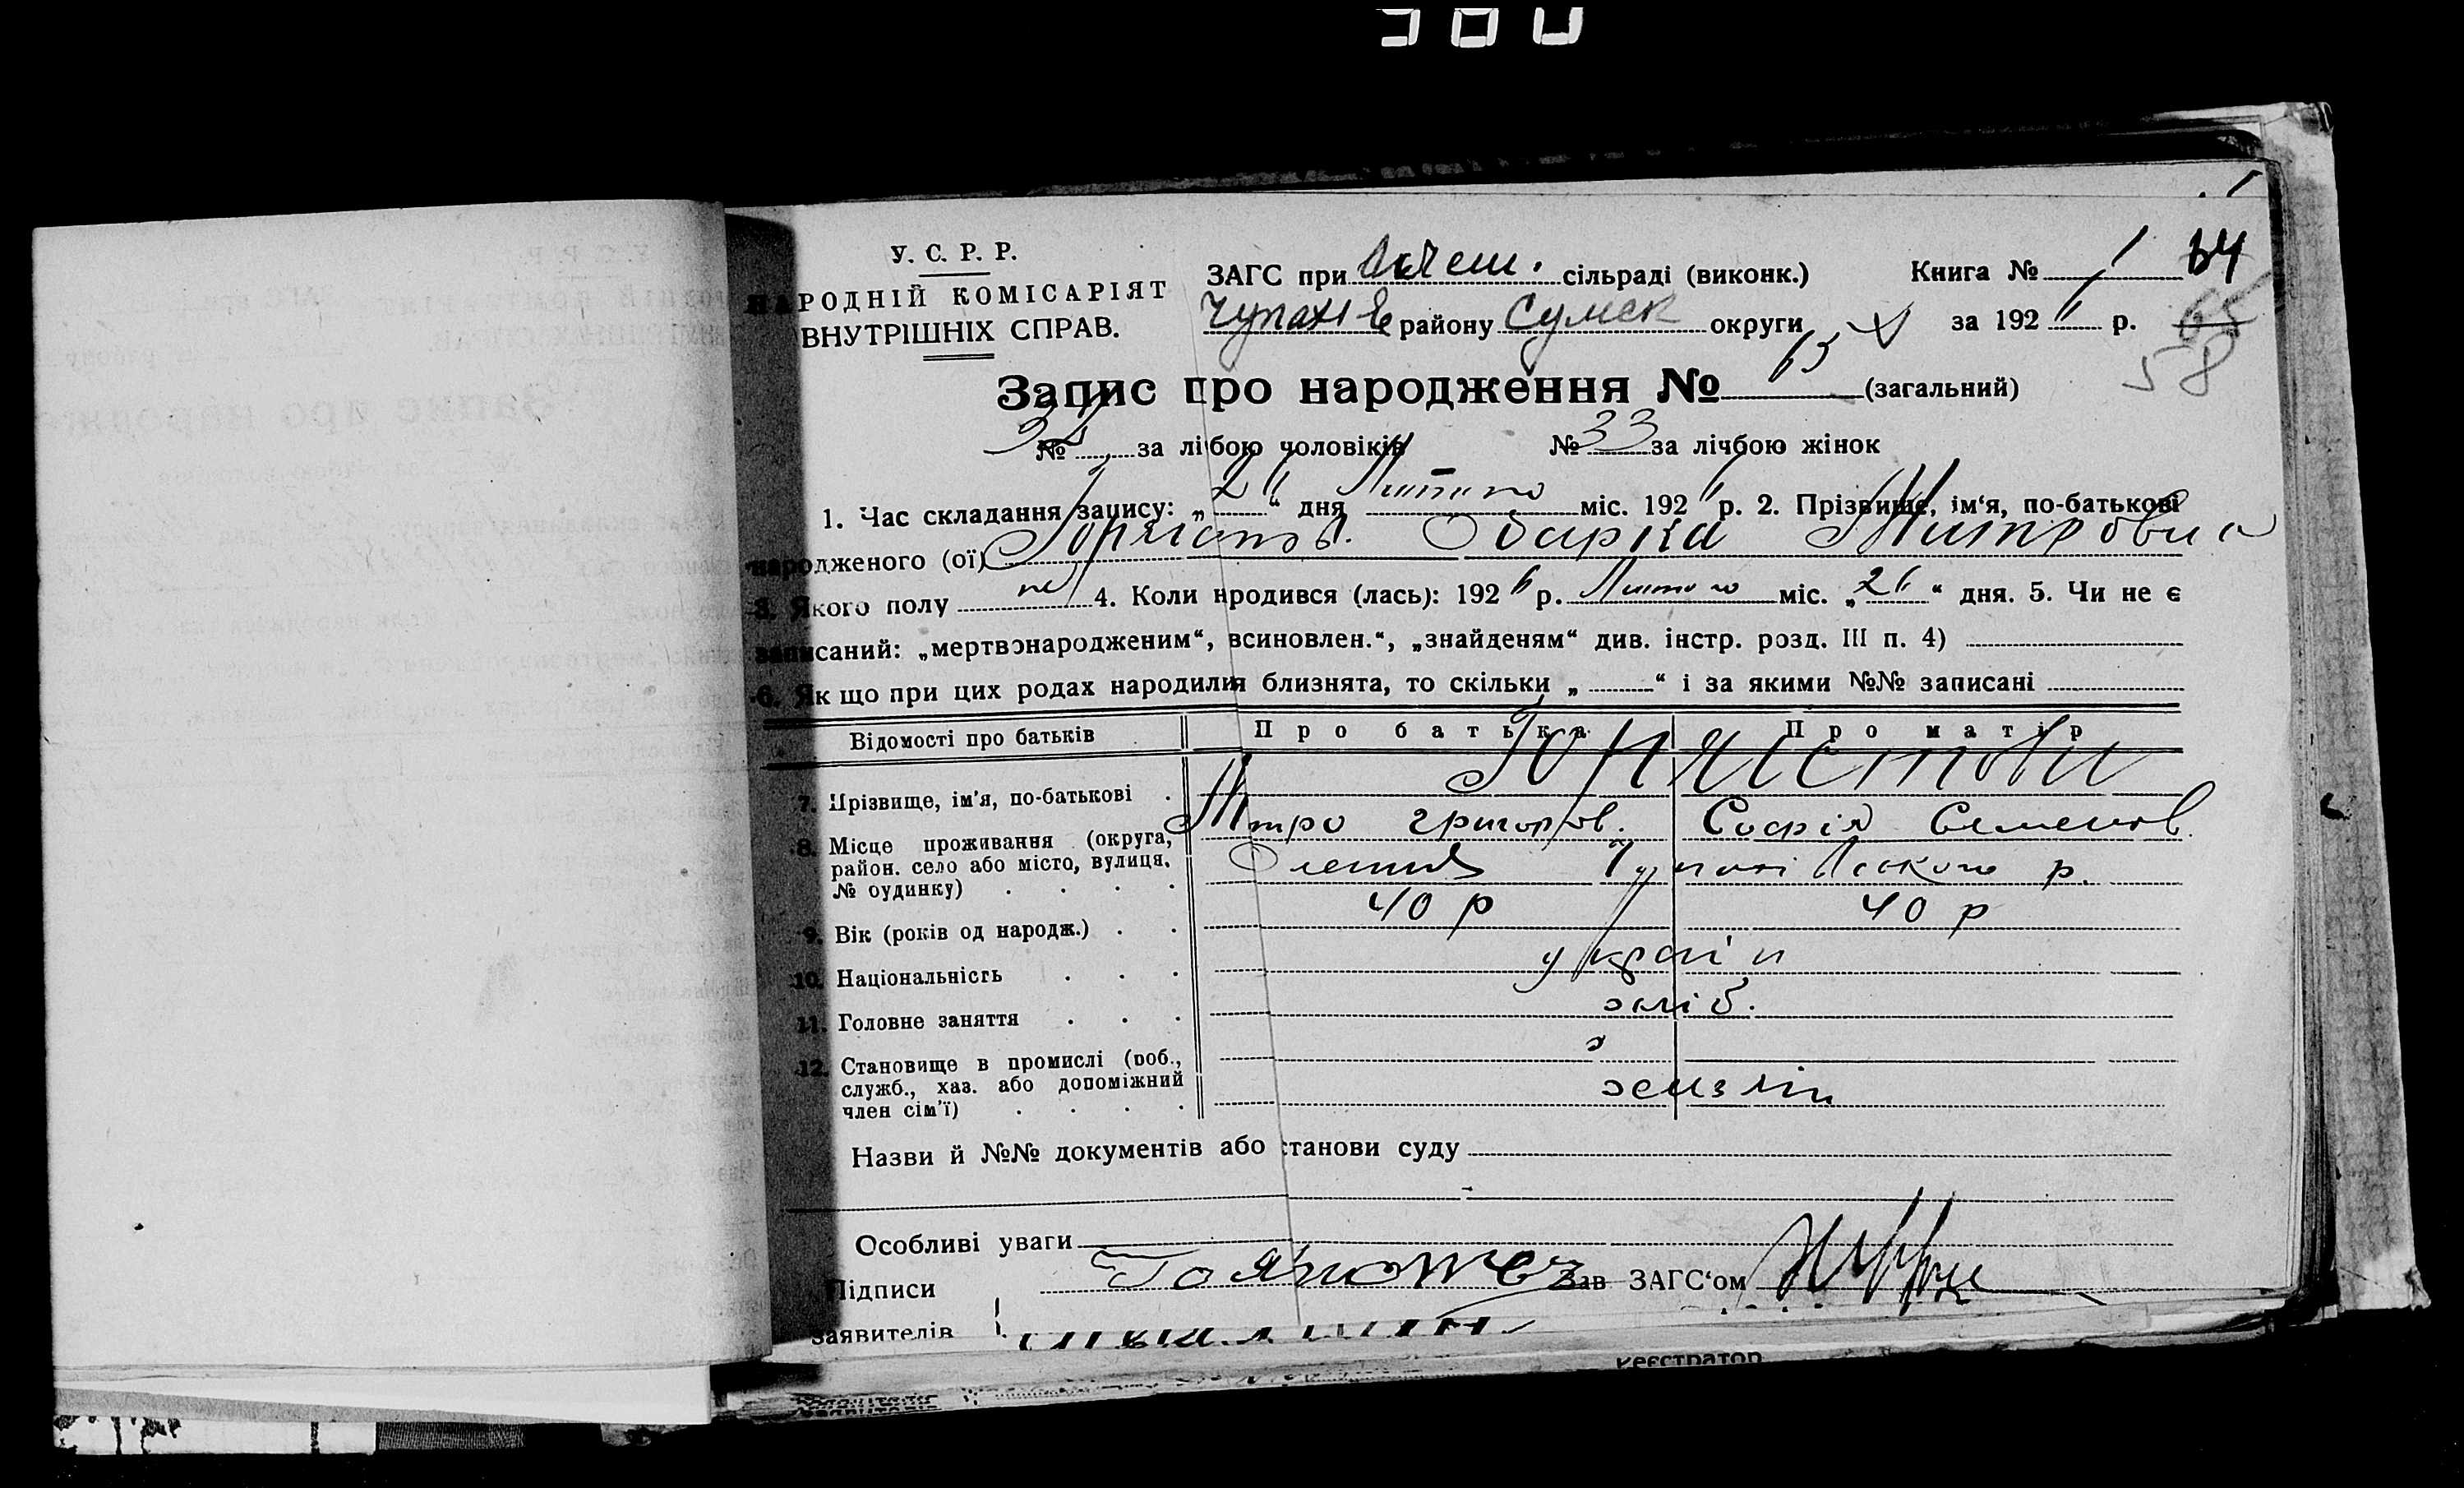 У. С. Р. Р.
НАРОДНІЙ КОМІСАРІЯТ
ВНУТРІШНІХ СПРАВ.
ЗАГС при сільраді (виконк.)
Книга № 1 64
району Сумск округи за 1926 р. 65
58
Запис про народження № 65 (загальний)
№ за лібою чоловіків № 33 за лічбою жінок
1. Час складання запису: „26“ дня Лютого міс. 1926 р. 2. Прізвище, ім‘я, по-батькові
народженого (ої) Одарка Митровна
3. Якого полу 4. Коли нродився (лась): 1926 р. Лютого міс. „26“ дня. 5. Чи не є
записаний: „мертвонародженим“, всиновлен.“, „знайденям“ див. інстр. розд. III п. 4)
6. Як що при цих родах народилия близнята, то скільки „ “ і за якими №№ записані
Відомості про батьків
Про батька
Про матір
7. Прізвище, ім'я, по-батькові
Митро Григоров. Софія Семенов.
8. Місце проживання (округа, район. село або місто, вулиця, № оудинку)
р.
9. Вік (років од народж.)
40 р 40 р
10. Національність
україн
11. Головне заняття
хліб.
12. Становище в промислі (роб., служб., хаз. або допоміжний член сім'ї)
Назви й №№ документів або станови суду
Особливі уваги
Підписи
Зав ЗАГС‘ом
заявителів
Реєстратор